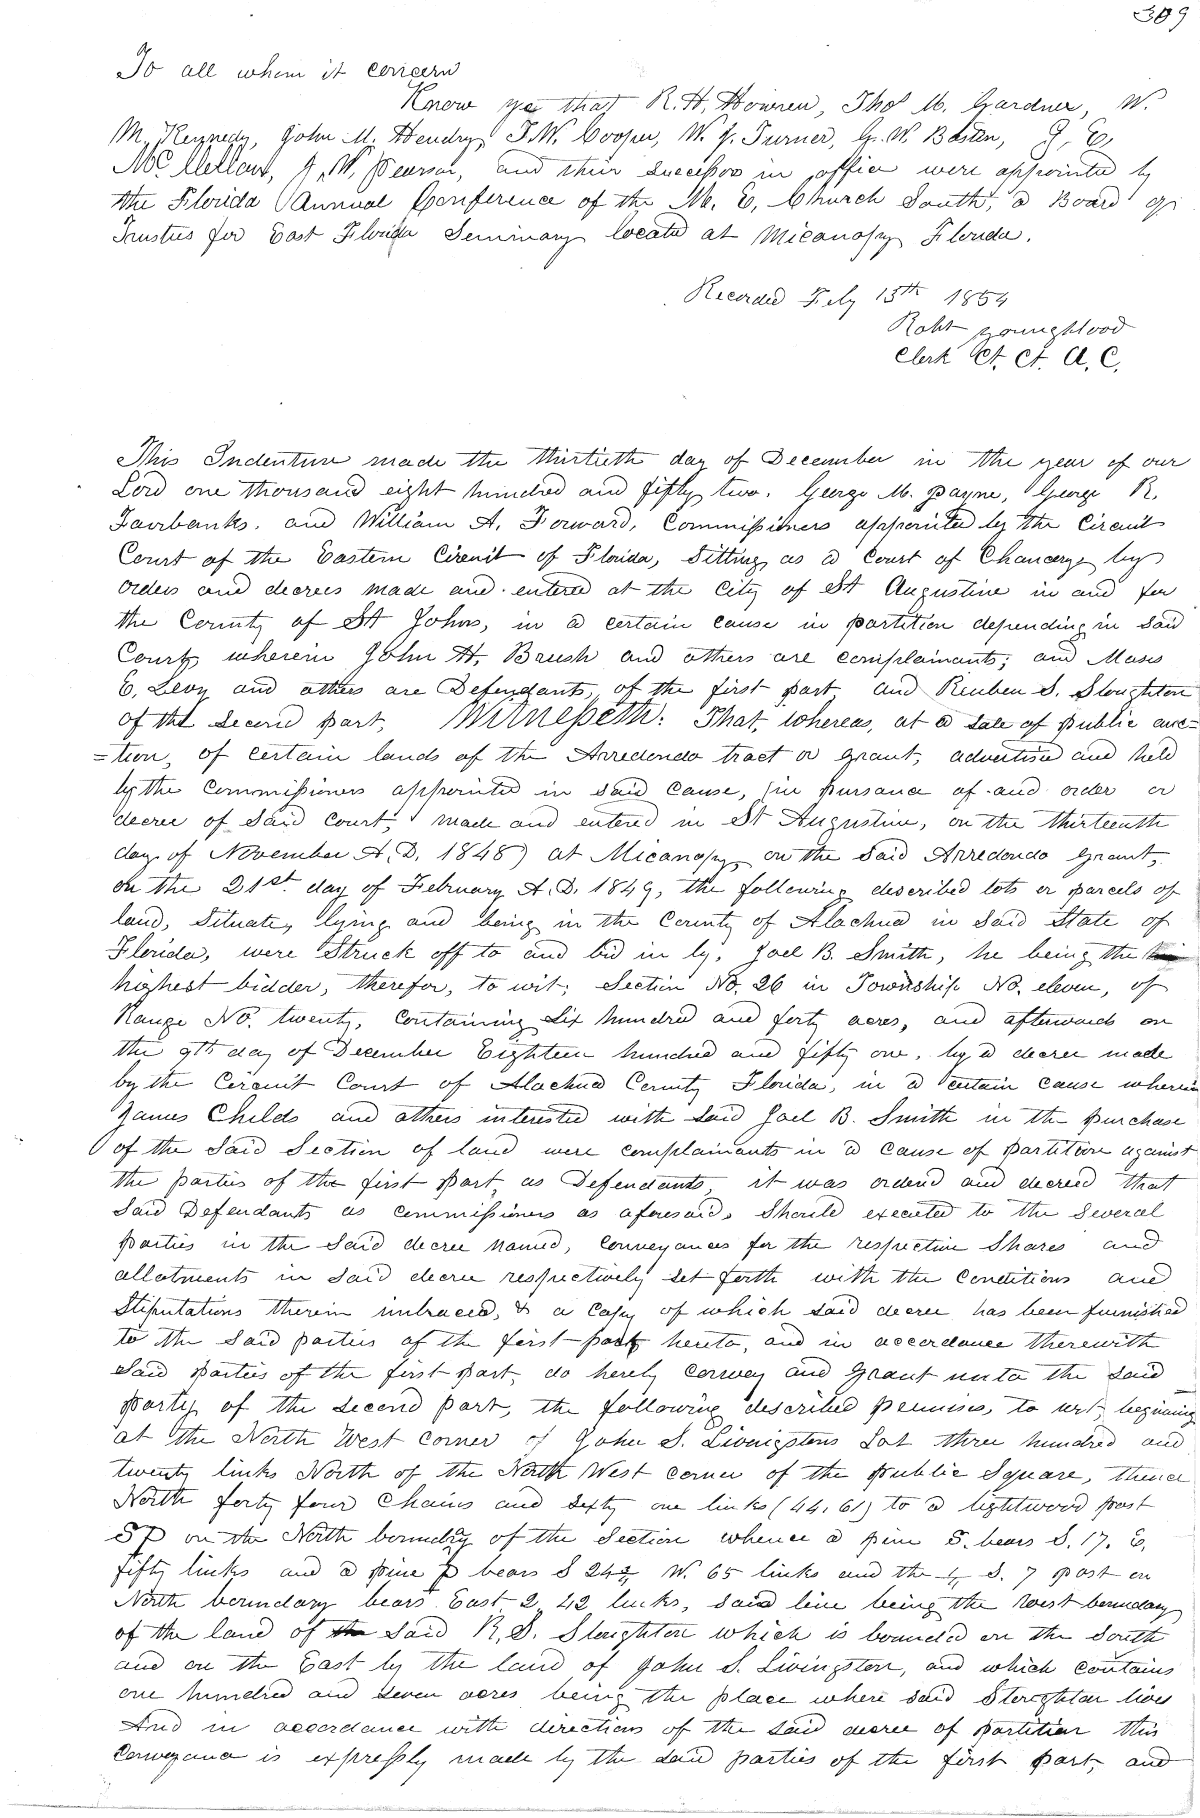 309
To all whom it concern
Know ye that R. H. Howren, Thos M. Gardner, W.
M. Kennedy, John M. Hendry, T. W. Cooper, W. J. Turner, G. W. Bosten, J. C.
McClellan, J. W. Pearson, and their successors in office were appointed by
the Florida Annual Conference of the M. E. Church South, a Board of
Trustees for East Florida Seminary located at Micanopy Florida.
Recorded Feby 13th 1854
Robt Youngblood
Clerk Ct. Ct. A. C.
This Indenture made the thirtieth day of December in the year of our
Lord one thousand eight hundred and fifty two. George M. Payne, George R.
Fairbanks, and William A. Forward, Commissioners appointed by the Circuit
Court of the Eastern Circuit of Florida, Sitting as a Court of Chancery by
orders and decrees made and entered at the City of St Augustine in and for
the County of St Johns, in a certain cause in partition depending in said
Court, wherein John H. Brush and others are complainants; and Moses
E. Levy and others are Defendants, of the first part and Reuben S. Sloughton
of the second part, Witnesseth: That, whereas, at a sale of public auc=
=tion, of certain lands of the Arredondo tract or grant, advertised and held
by the Commissioners appointed in said cause, (in pursance of and order or
decree of said court, made and entered in St Augustine, on the thirteenth
day of November A. D. 1848) at Micanopy, on the said Arredondo Grant,
on the 21st day of February A. D. 1849, the following described lots or parcels of
land, Situate, lying and being in the County of Alachua in said State of
Florida, were Struck off to and bid in by, Joel B. Smith, he being the
highest bidder, therefor, to wit; Section No. 26 in Township No. eleven, of
Range No. twenty, containing six hundred and forty acres, and afterwards on
the 9th day of December Eighteen hundred and fifty one, by a decree made
by the Circuit Court of Alachua County Florida, in a certain cause wherein
James Childs and others interested with said Joel B. Smith in the purchase
of the said Section of land were complainants in a cause of partition against
the parties of the first part, as Defendants, it was orderd and decreed that
said Defendants as commissioners as aforesaid, Should executed to the several
parties in the said decree named, conveyances for the respective shares and
allotments in said decree respectively set forth with the conditions and
Stiputations therein imbraced, & a copy of which said decree has been furnished
to the said parties of the first part hereto, and in accordance therewith
said parties of the first part, do hereby convey and grant unto the said
party of the second part, the following described premises, to wit, beginning
at the North West corner of John S. Livingstons Lot three hundred and
twenty links North of the North West corner of the public Square, thence
North forty four Chains and sixty one links (44,61) to a lightwood post
on the North boundry of the Section whence a pine S. bears S. 17. E,
fifty links and a pine P bears S 24½ W. 65 links and the ¼ S. 7 post on
North boundary bears East 2, 42 links, said line being the west boundary
of the land of said R. S. Sloughton which is bounded on the South
and on the East by the land of John S. Livingston, and which contains
one hundred and seven acres being the place where said Sloughton lives
And in accordance with directions of the said decree of partition this
Conveyance is expressly made by the said parties of the first part, and